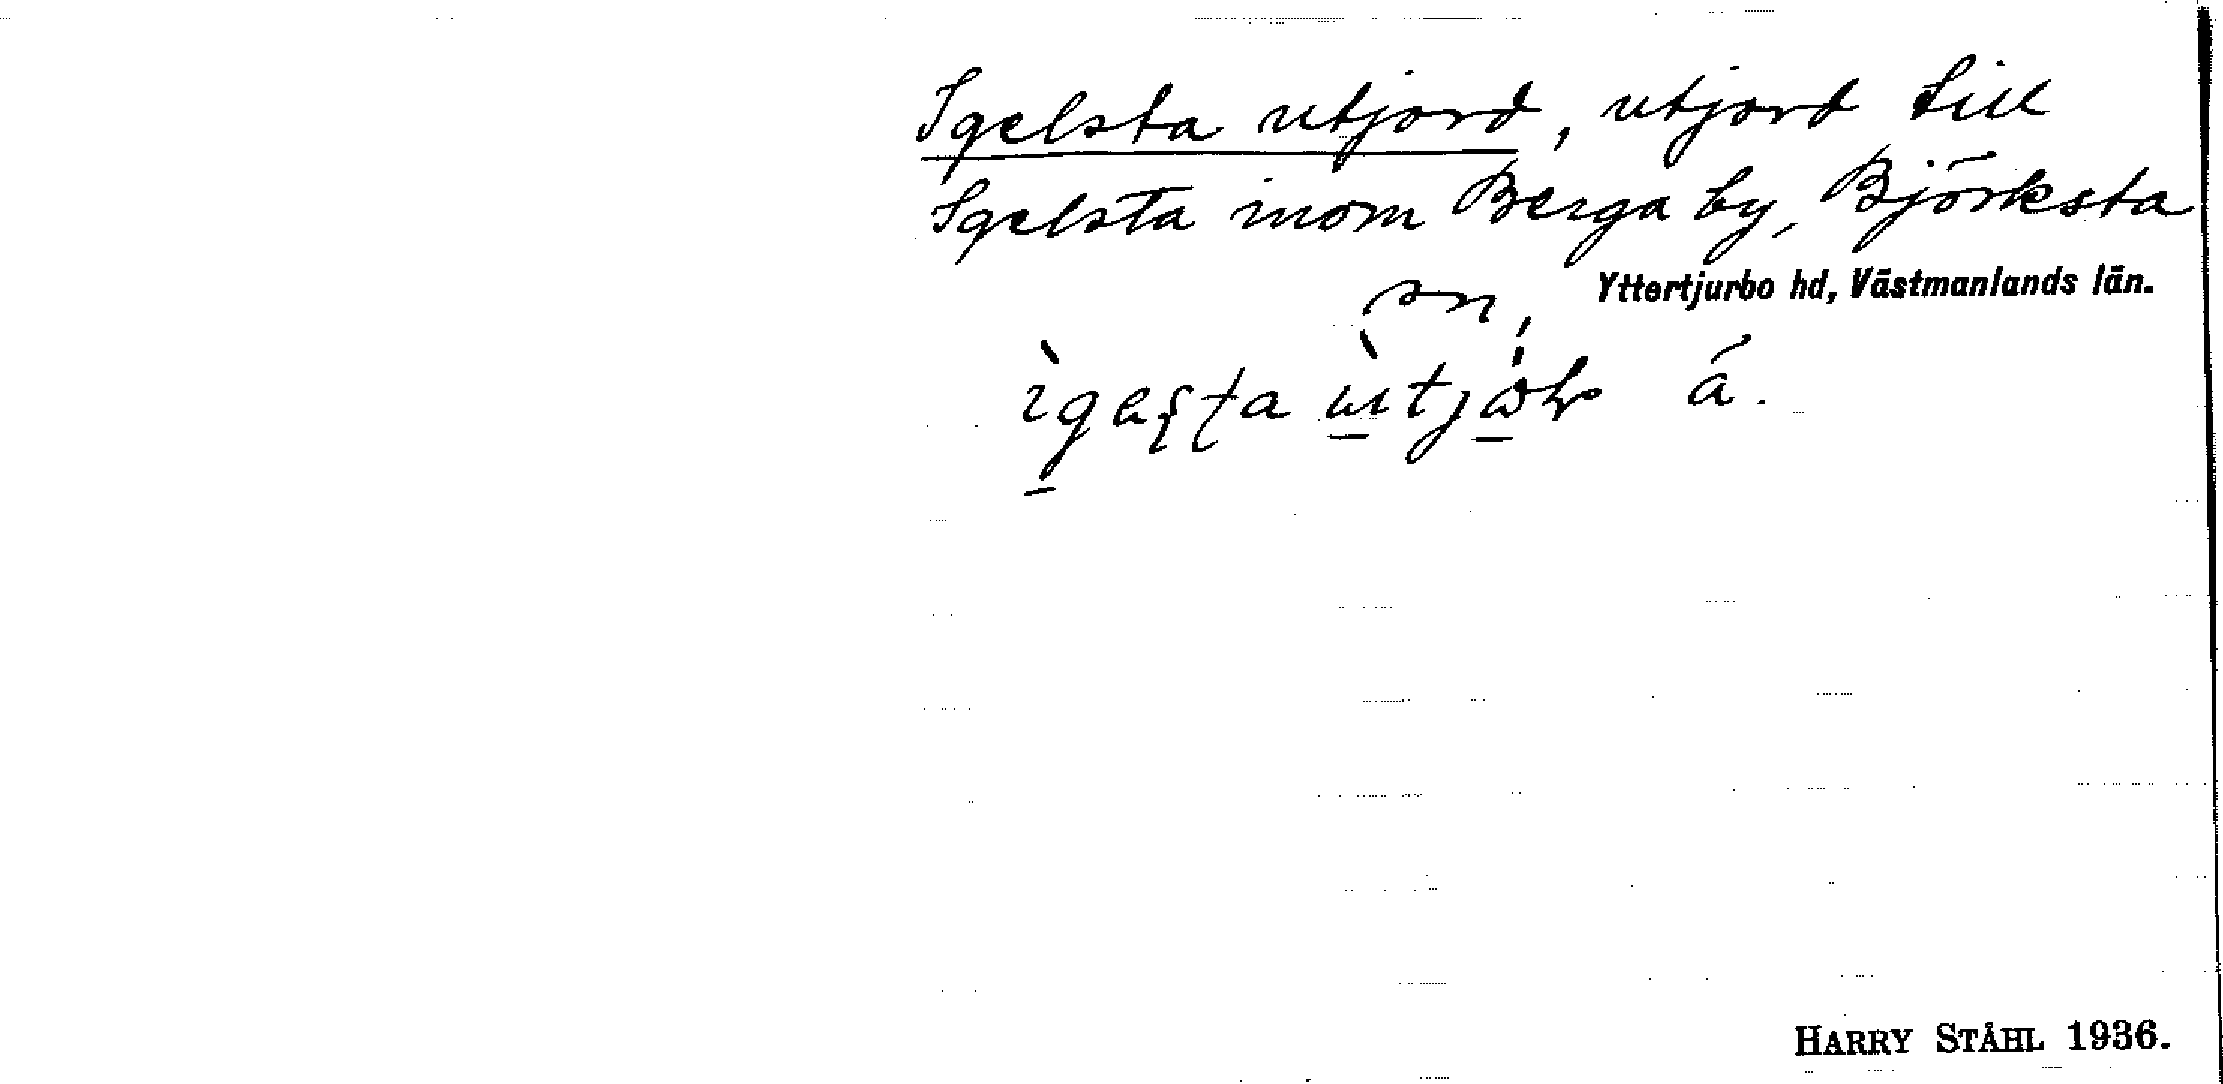 Igelsta utjord, utjord till
Igelsta inom Berga by, Björksta
sn,
Yttertjurbo hd, Västmanlands län.
å.
HARRY STÅHL 1936.